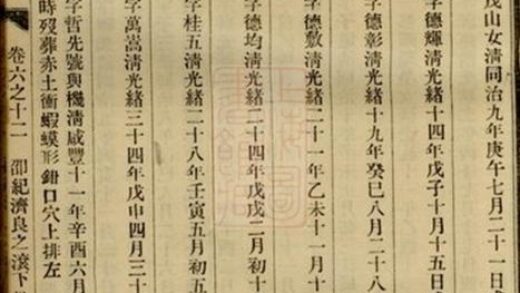 茂山女清同治九年庚午七月二十一日
字德輝清光緒十四年戊子十月十五日
字德彰清光緒十九年癸巳八月二十八
字德敷清光緒二十一年乙未十一月十
字德均清光緒二十四年戊戌二月初十
字桂五清光緒二十八年壬寅五月初五
字萬嵩清光緒三十四年戊申四月三十
字哲先號與機清咸豐十一年辛酉六月
時歿葬赤土衝蝦蟆形鉗口穴上排左
卷六之十二 邵紀濟良之滾下